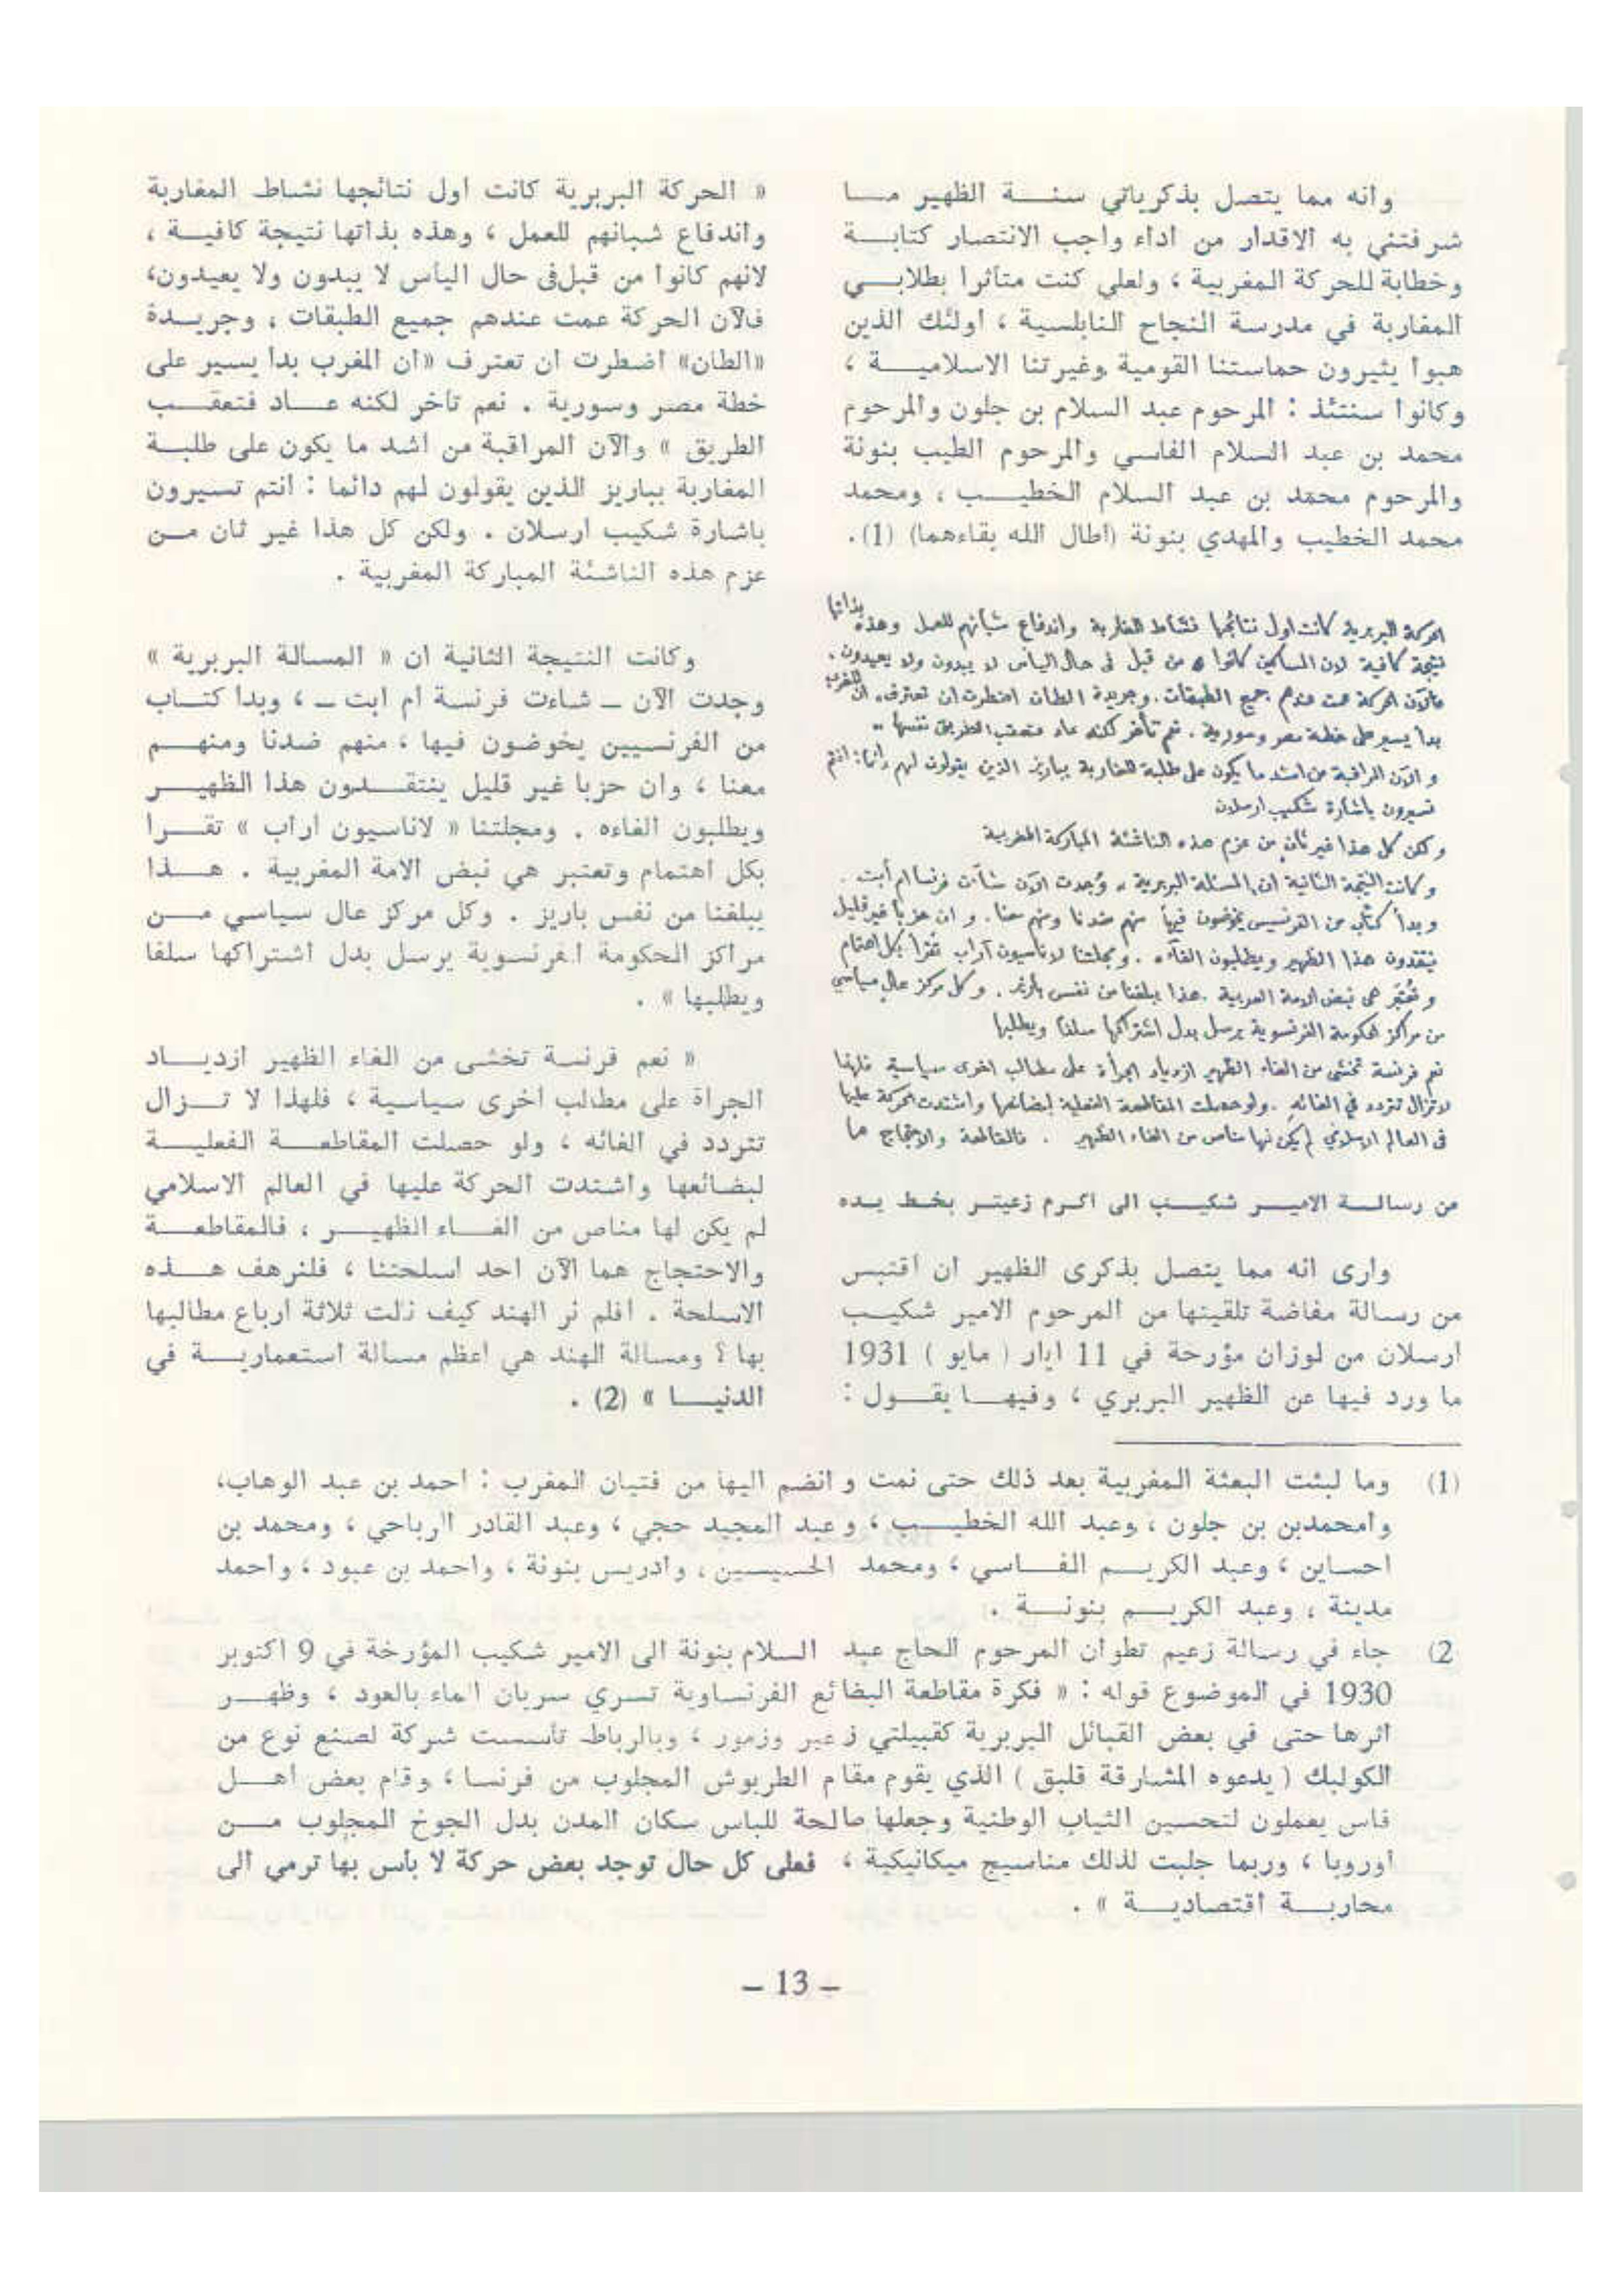 وانه مما يتصل بذكرياتي سنة الظهير ما
شرفتني به الاقدار من اداء واجب الانتصار كتابة
وخطابة للحركة المغربية ، ولعلي كنت متأثرا بطلابي
المغاربة في مدرسة النجاح النابلسية ، اولئك الذين
هبوا يثيرون حماستنا القومية وغيرتنا الاسلامية ،
وكانوا سنتئذ : المرحوم عبد السلام بن جلون والمرحوم
محمد بن عبد السلام الفاسي والمرحوم الطيب بنونة
والمرحوم محمد بن عبد السلام الخطيب ، ومحمد
محمد الخطيب والمهدي بنونة (اطال الله بقاءهما) (1).
الحركة البربرية كانت اول نتائجها نشاط المغاربة واندفاع شبانهم للعمل وهذه بذاتها
نتيجة كافية لان المساكين كانوا من قبل في حال اليأس لا يبدون ولا يعيدون .
فالآن الحركة عمت عندهم جميع الطبقات . وجريدة الطان اضطرت ان تعترف ان المغرب
بدا يسير على خطة مصر وسورية . نعم تأخر لكنه عاد فتعقب الطريق نفسها »
و الآن المراقبة من اشد ما يكون على طلبة المغاربة بباريز الذين يقولون لهم دائما : انتم
تسيرون باشارة شكيب ارسلان
ولكن كل هذا غير ثان من عزم هذه الناشئة المباركة المغربية
وكانت النتيجة الثانية ان المسئلة البربرية وُجدت الآن شاءت فرنسا ام أبت .
وبدأ كتاب من الفرنسيس يخوضون فيها منهم ضدنا ومنهم معنا . و ان حزبا غير قليل
ينتقدون هذا الظهير ويطلبون الغاءه . ومجلتنا لاناسيون آراب تقرأ بكل اهتمام
و تعتبر هي نبض الامة العربية . هذا يبلغنا من نفس باريز . وكل مركز عال سياسي
من مراكز الحكومة الفرنسوية يرسل بدل اشتراكها سلفا ويطلبها
نعم فرنسة تخشى من الغاء الظهير ازدياد الجرأة على مطالب اخرى سياسية فلهذا
لا تزال تتردد في الغائه . ولو حصلت المقاطعة الفعلية لبضائعها واشتدت الحركة عليها
في العالم الاسلامي لم يكن لها مناص من الغاء الظهير . فالمقاطعة والاحتجاج هما
من رسالة الامير شكيب الى اكرم زعيتر بخط يده
وارى انه مما يتصل بذكرى الظهير ان اقتبس
من رسالة مفاضة تلقيتها من المرحوم الامير شكيب
ارسلان من لوزان مؤرخة في 11 ايار ( مايو ) 1931
ما ورد فيها عن الظهير البربري ، وفيها يقول :
« الحركة البربرية كانت اول نتائجها نشاط المغاربة
واندفاع شبانهم للعمل ، وهذه بذاتها نتيجة كافية ،
لانهم كانوا من قبل في حال اليأس لا يبدون ولا يعيدون،
فالآن الحركة عمت عندهم جميع الطبقات ، وجريدة
«الطان» اضطرت ان تعترف «ان المغرب بدأ يسير على
خطة مصر وسورية . نعم تأخر لكنه عاد فتعقب
الطريق » والآن المراقبة من اشد ما يكون على طلبة
المغاربة بباريز الذين يقولون لهم دائما : انتم تسيرون
باشارة شكيب ارسلان . ولكن كل هذا غير ثان من
عزم هذه الناشئة المباركة المغربية .
وكانت النتيجة الثانية ان « المسالة البربرية »
وجدت الآن ـ شاءت فرنسة ام ابت ـ ، وبدا كتاب
من الفرنسيين يخوضون فيها ، منهم ضدنا ومنهم
معنا ، وان حزبا غير قليل ينتقدون هذا الظهير
ويطلبون الغاءه . ومجلتنا « لاناسيون اراب » تقرا
بكل اهتمام وتعتبر هي نبض الامة المغربية . هذا
يبلغنا من نفس باريز . وكل مركز عال سياسي من
مراكز الحكومة الفرنسوية يرسل بدل اشتراكها سلفا
ويطلبها » .
« نعم فرنسة تخشى من الغاء الظهير ازدياد
الجراة على مطالب اخرى سياسية ، فلهذا لا تزال
تتردد في الغائه ، ولو حصلت المقاطعة الفعلية
لبضائعها واشتدت الحركة عليها في العالم الاسلامي
لم يكن لها مناص من الغاء الظهير ، فالمقاطعة
والاحتجاج هما الآن احد اسلحتنا ، فلنرهف هذه
الاسلحة . افلم نر الهند كيف نلت ثلاثة ارباع مطالبها
بها ؟ ومسالة الهند هي اعظم مسالة استعمارية في
الدنيا » (2) .
(1) وما لبثت البعثة المغربية بعد ذلك حتى نمت و انضم اليها من فتيان المغرب : احمد بن عبد الوهاب،
وامحمد بن بن جلون ، وعبد الله الخطيب ، وعبد المجيد حجي ، وعبد القادر الرباحي ، ومحمد بن
احساين ، وعبد الكريم الفاسي ، ومحمد الحسيسين ، وادريس بنونة ، واحمد بن عبود ، واحمد
مدينة ، وعبد الكريم بنونة .
2) جاء في رسالة زعيم تطوان المرحوم الحاج عبد السلام بنونة الى الامير شكيب المؤرخة في 9 اكتوبر
1930 في الموضوع قوله : « فكرة مقاطعة البضائع الفرنساوية تسري سريان الماء بالعود ، وظهر
اثرها حتى في بعض القبائل البربرية كقبيلتي زعير وزمور ، وبالرباط تأسست شركة لصنع نوع من
الكولبك ( يدعوه المشارقة قلبق ) الذي يقوم مقام الطربوش المجلوب من فرنسا ، وقام بعض اهل
فاس يعملون لتحسين الثياب الوطنية وجعلها صالحة للباس سكان المدن بدل الجوخ المجلوب من
اوروبا ، وربما جلبت لذلك مناسيج ميكانيكية ، فعلى كل حال توجد بعض حركة لا باس بها ترمي الى
محاربة اقتصادية » .
– 13 –